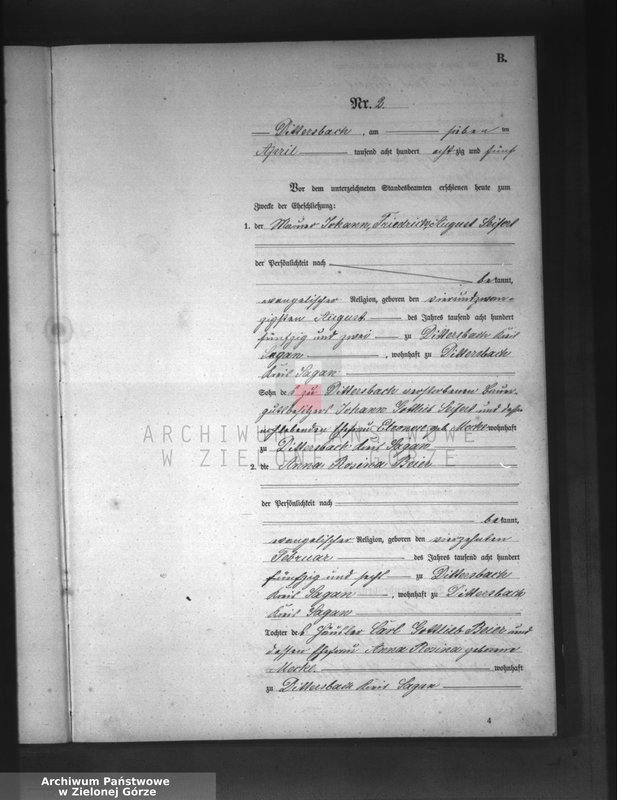 B.
Nr. 2.
Dittersbach, am sieben ten
April tausend acht hundert acht zig und fünf
Vor dem unterzeichneten Standesbeamten erschienen heute zum
Zwecke der Eheschließung:
1. der Maurer Johann, Friedrich, August Seifert
der Persönlichkeit nach
be kannt,
evangelischer Religion, geboren den vierundzwan-
zigsten August des Jahres tausend acht hundert
fünfzig und zwei zu Dittersbach Kreis
Sagan, wohnhaft zu Dittersbach
Kreis Sagan
Sohn des zu Dittersbach verstorbenen Bauer-
gutsbesitzers Johann Gottlieb Seifert und dessen
Ehefrau Eleonore geb. wohnhaft
zu Dittersbach Kreis Sagan
2. die Anna Rosina Beier
der Persönlichkeit nach
be kannt,
evangelischer Religion, geboren den vierzehnten
Februar des Jahres tausend acht hundert
fünfzig und sechs zu Dittersbach
Kreis Sagan, wohnhaft zu Dittersbach
Kreis Sagan
Tochter des Häusler Carl Gottlieb Beier und
dessen Ehefrau Anna Rosina geborene
wohnhaft
zu Dittersbach Kreis Sagan
4
ARCHIWUM PAŃSTWOWE
W ZIELONEJ GÓRZE
Archiwum Państwowe
w Zielonej Górze